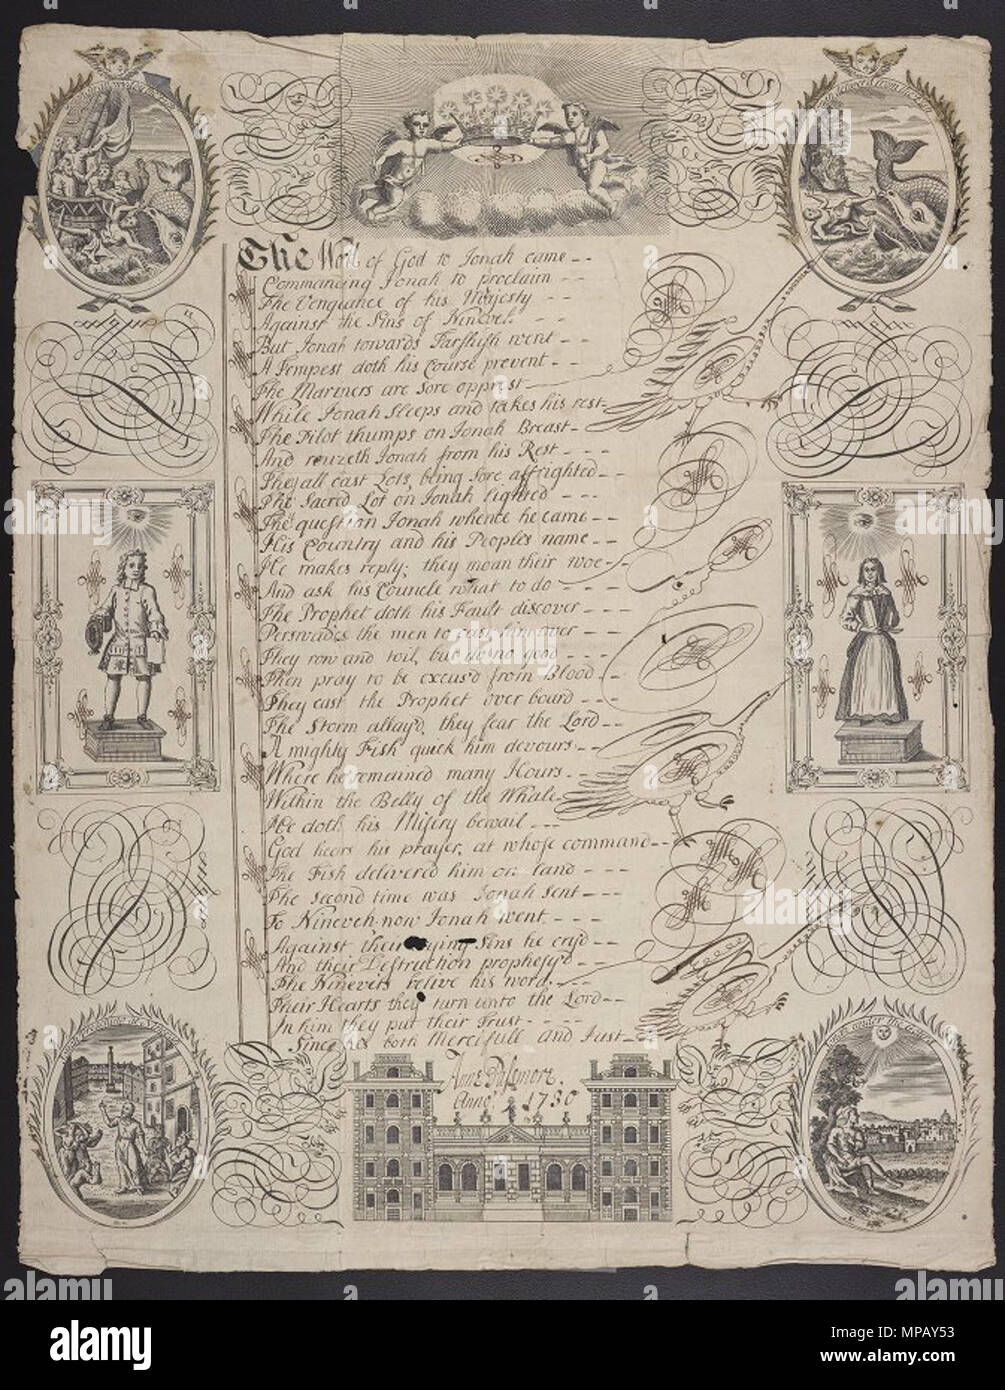 The Word of God to Jonah came --
Commanding Jonah to proclaim --
The Vengiance of his Majesty --
Against the Sins of Nineveh --
But Jonah towards Tarshish went --
A Tempest doth his Course prevent -
The Mariners are sore opprest -
While Jonah sleeps and takes his rest-
The Pilot thumps on Jonah Breast -
And rouzeth Jonah from his Rest ---
The all cast Lots, being sore affrighted --
The Sacred Lot on Jonah lighted ---
The question Jonah whence he came --
His Country and his Peoples name --
He makes reply; they moan their woe--
And ask his Councle what to do ---
The Prophet doth his Fault discover ---
Perswades the men to cast him over ---
They row and toil, but do no good ---
Then pray to be excus'd from Blood --
They cast the Prophet over board ---
The Storm allay'd, they fear the Lord --
A mighty Fish quick him devours --
Where he remained many Hours --
Within the Belly of the Whale
He doth his Misery bewail ---
God hears his prayer, at whose command --
The Fish delivered him on land ---
The second time was Jonah sent ---
To Nineveh now Jonah went ---
Against their crying Sins he cry'd --
And their Destruction prophesy'd --
The Ninevets relive his word, --
Their Hearts they turn unto the Lord --
In him they put their Trust ----
Since he's both Mercifull and Just --
Anne
Anno: 1730
alamy
Image ID: MPAY53
www.alamy.com